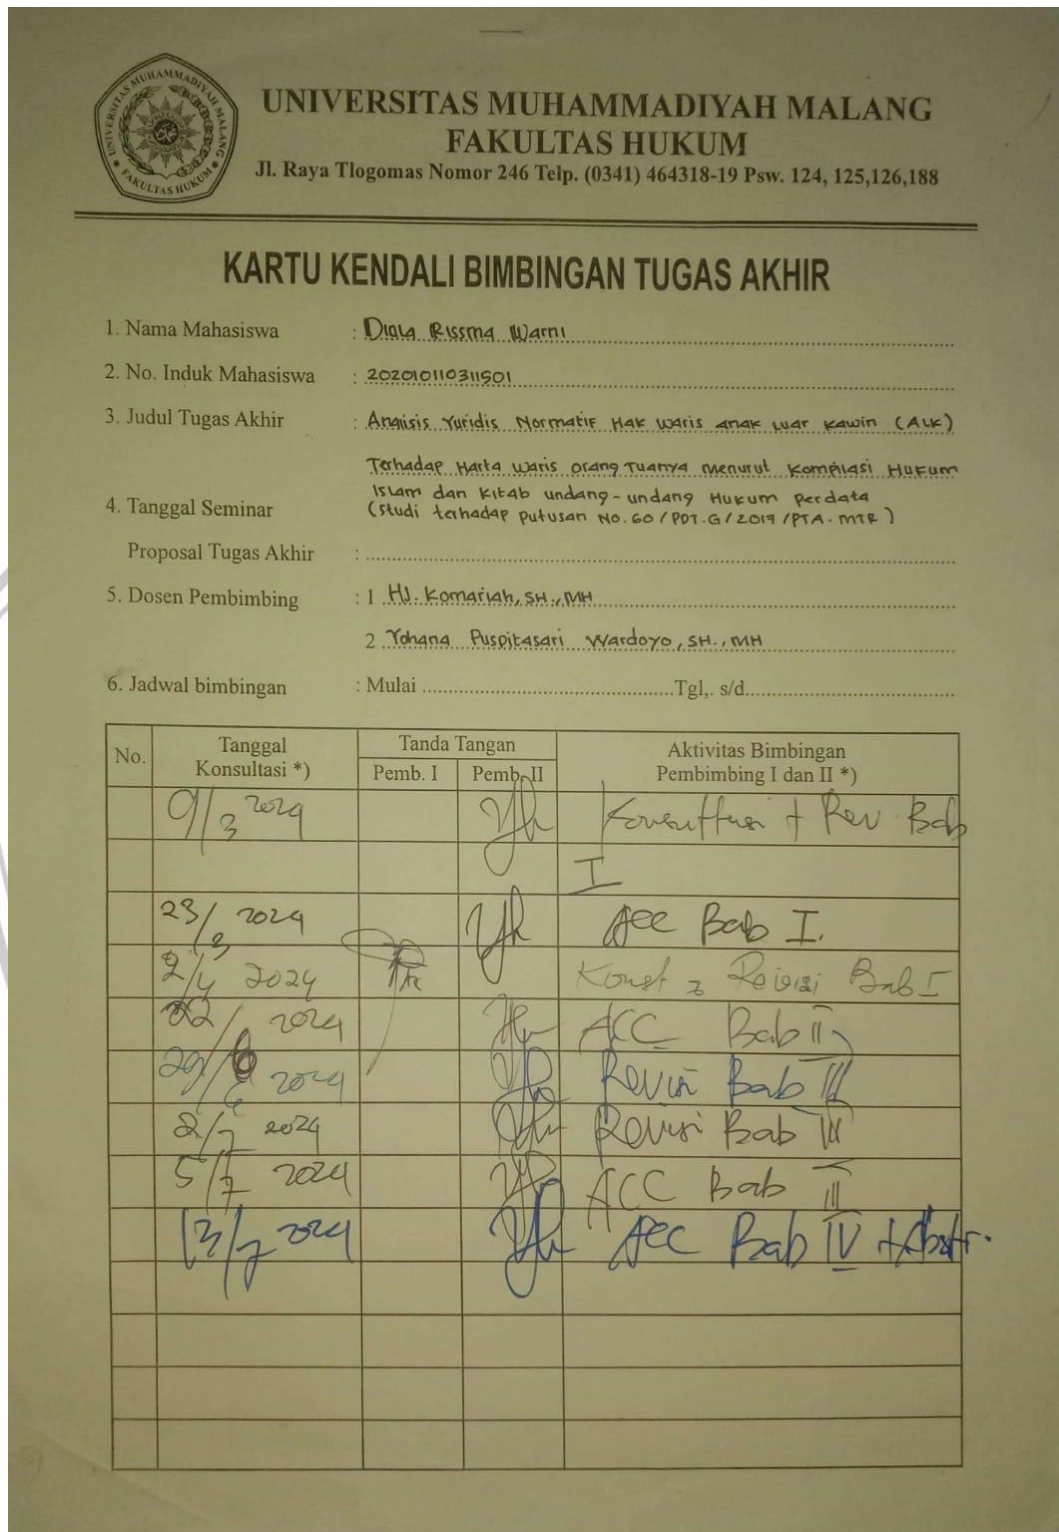 UNIVERSITAS MUHAMMADIYAH MALANG
FAKULTAS HUKUM
UNIVERSITAS MUHAMMADIYAH MALANG
FAKULTAS HUKUM
Jl. Raya Tlogomas Nomor 246 Telp. (0341) 464318-19 Psw. 124, 125,126,188
KARTU KENDALI BIMBINGAN TUGAS AKHIR
1. Nama Mahasiswa : Diala Rissma Warni
2. No. Induk Mahasiswa : 202010110311501
3. Judul Tugas Akhir : Analisis Yuridis Normatif Hak waris anak Luar Kawin (ALK)
Terhadap Harta waris orang Tuanya menurut Kompilasi Hukum
Islam dan Kitab undang-undang Hukum Perdata
4. Tanggal Seminar (Studi terhadap putusan No. 60/PDT.G/2019/PTA.MTR)
Proposal Tugas Akhir :
5. Dosen Pembimbing : 1 Hj. Komariah, SH., MH
2 Yohana Puspitasari Wardoyo, SH., MH
6. Jadwal bimbingan : Mulai Tgl,. s/d
No. Tanggal Konsultasi *) Tanda Tangan Aktivitas Bimbingan
Pemb. I Pemb. II Pembimbing I dan II *)
/3 2024 + Rev Bab
I
23/3 2024 Acc Bab I.
2/4 2024 Revisi Bab I
22/ 2024 ACC Bab II
2024 Revisi Bab III
2/7 2024 Revisi Bab III
5/7 2024 ACC Bab III
13/7 2024 Acc Bab IV + Abstr.